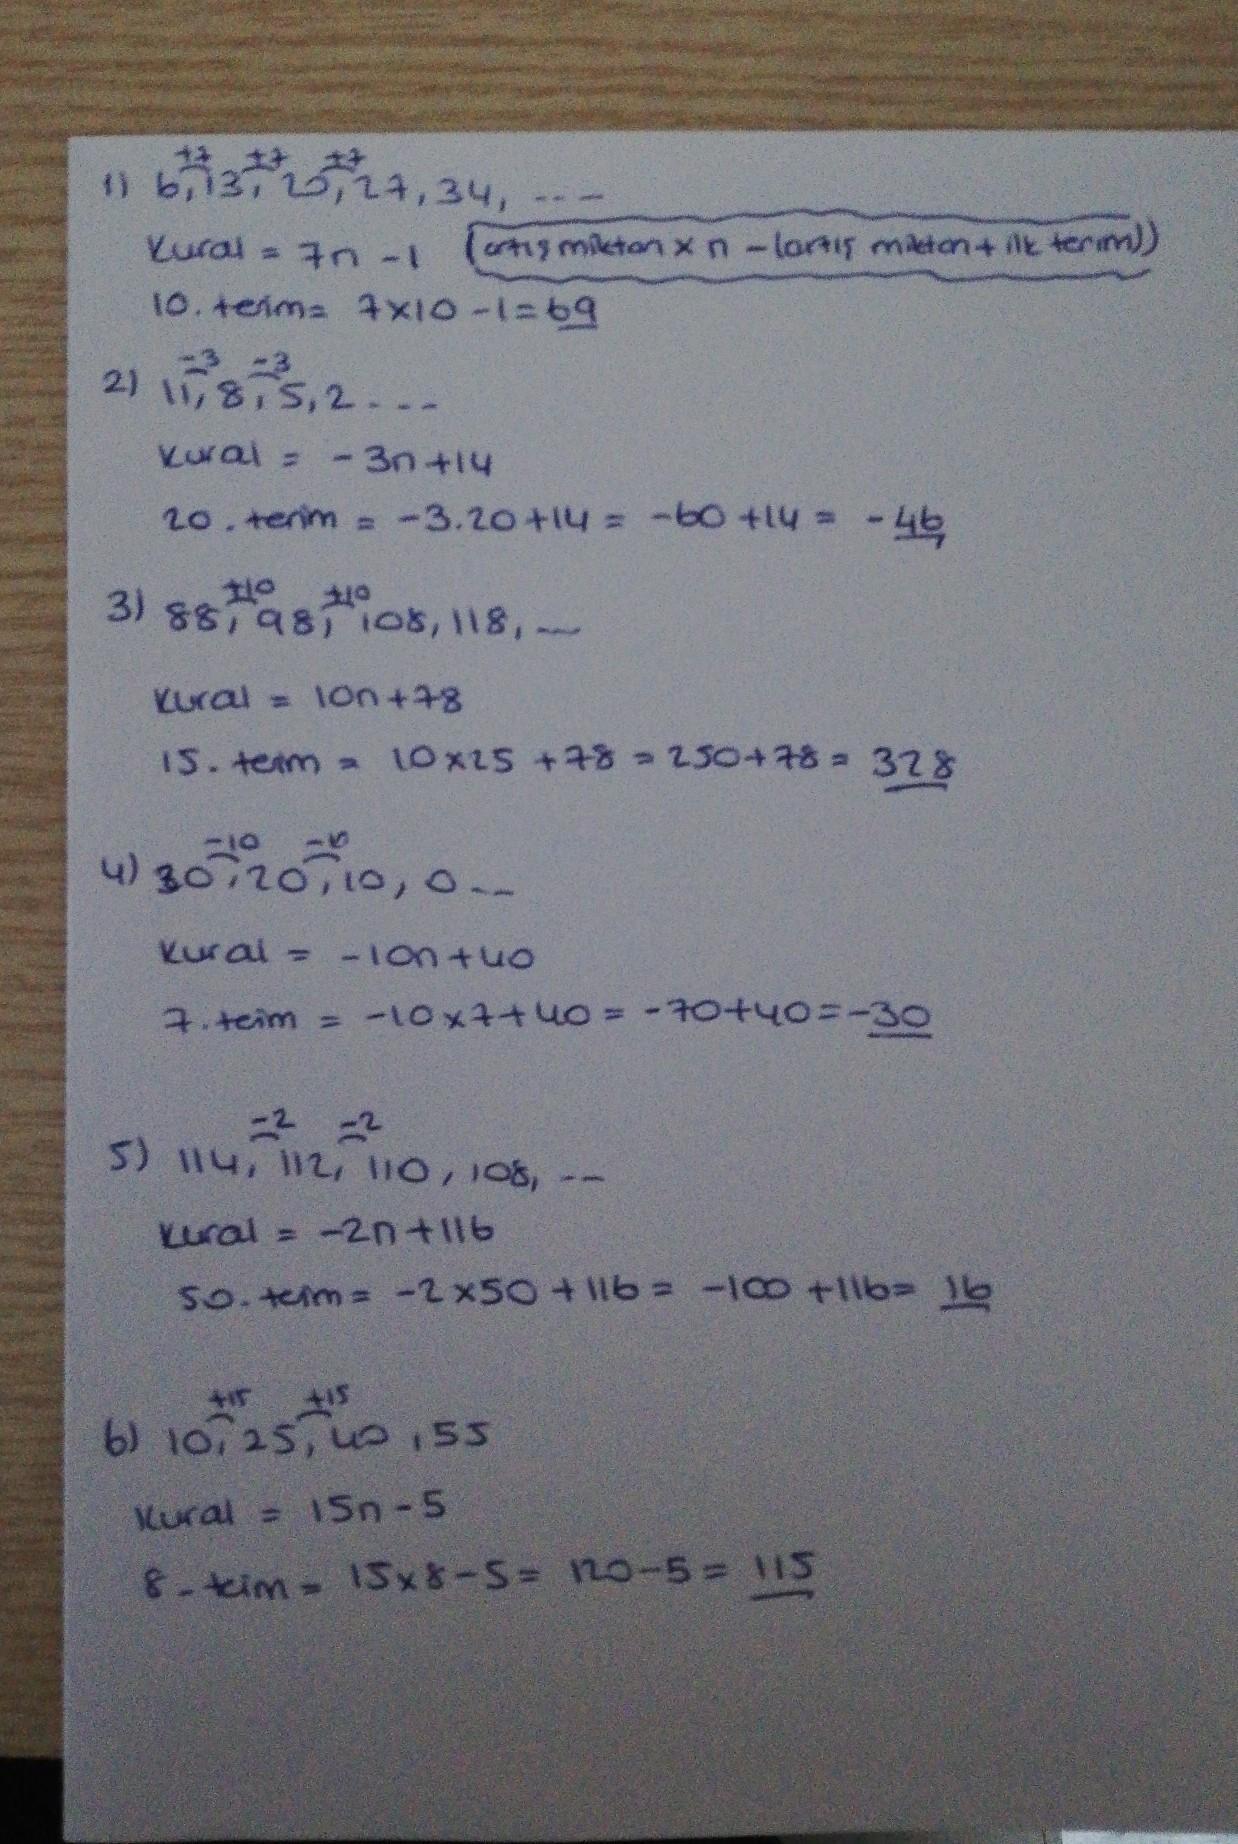 +7 +7 +7
1) 6, 13, 20, 27, 34, ....
Kural = 7n - 1 (artış miktarı x n - (artış miktarı + ilk terim))
10. terim = 7x10 - 1 = 69
-3 -3
2) 11, 8, 5, 2 ....
Kural = -3n+14
20. terim = -3.20+14 = -60+14 = -46
+10 +10
3) 88, 98, 108, 118, ...
Kural = 10n+78
15. terim = 10x25 +78 = 250+78 = 328
-10 -10
4) 30, 20, 10, 0 ...
Kural = -10n+40
7. terim = -10x7+40 = -70+40 = -30
-2 -2
5) 114, 112, 110, 108, ...
Kural = -2n+116
50. terim = -2x50+116 = -100+116 = 16
+15 +15
6) 10, 25, 40, 55
Kural = 15n-5
8. terim = 15x8-5 = 120-5 = 115